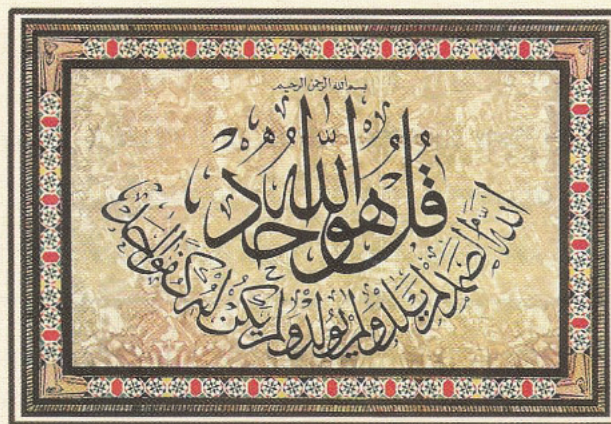 بسم الله الرحمن الرحيم
قُلْ هُوَ اللّٰهُ أَحَدٌ
اللّٰهُ الصَّمَدُ لَمْ يَلِدْ وَلَمْ يُولَدْ وَلَمْ يَكُنْ لَهُ كُفُوًا أَحَدٌ